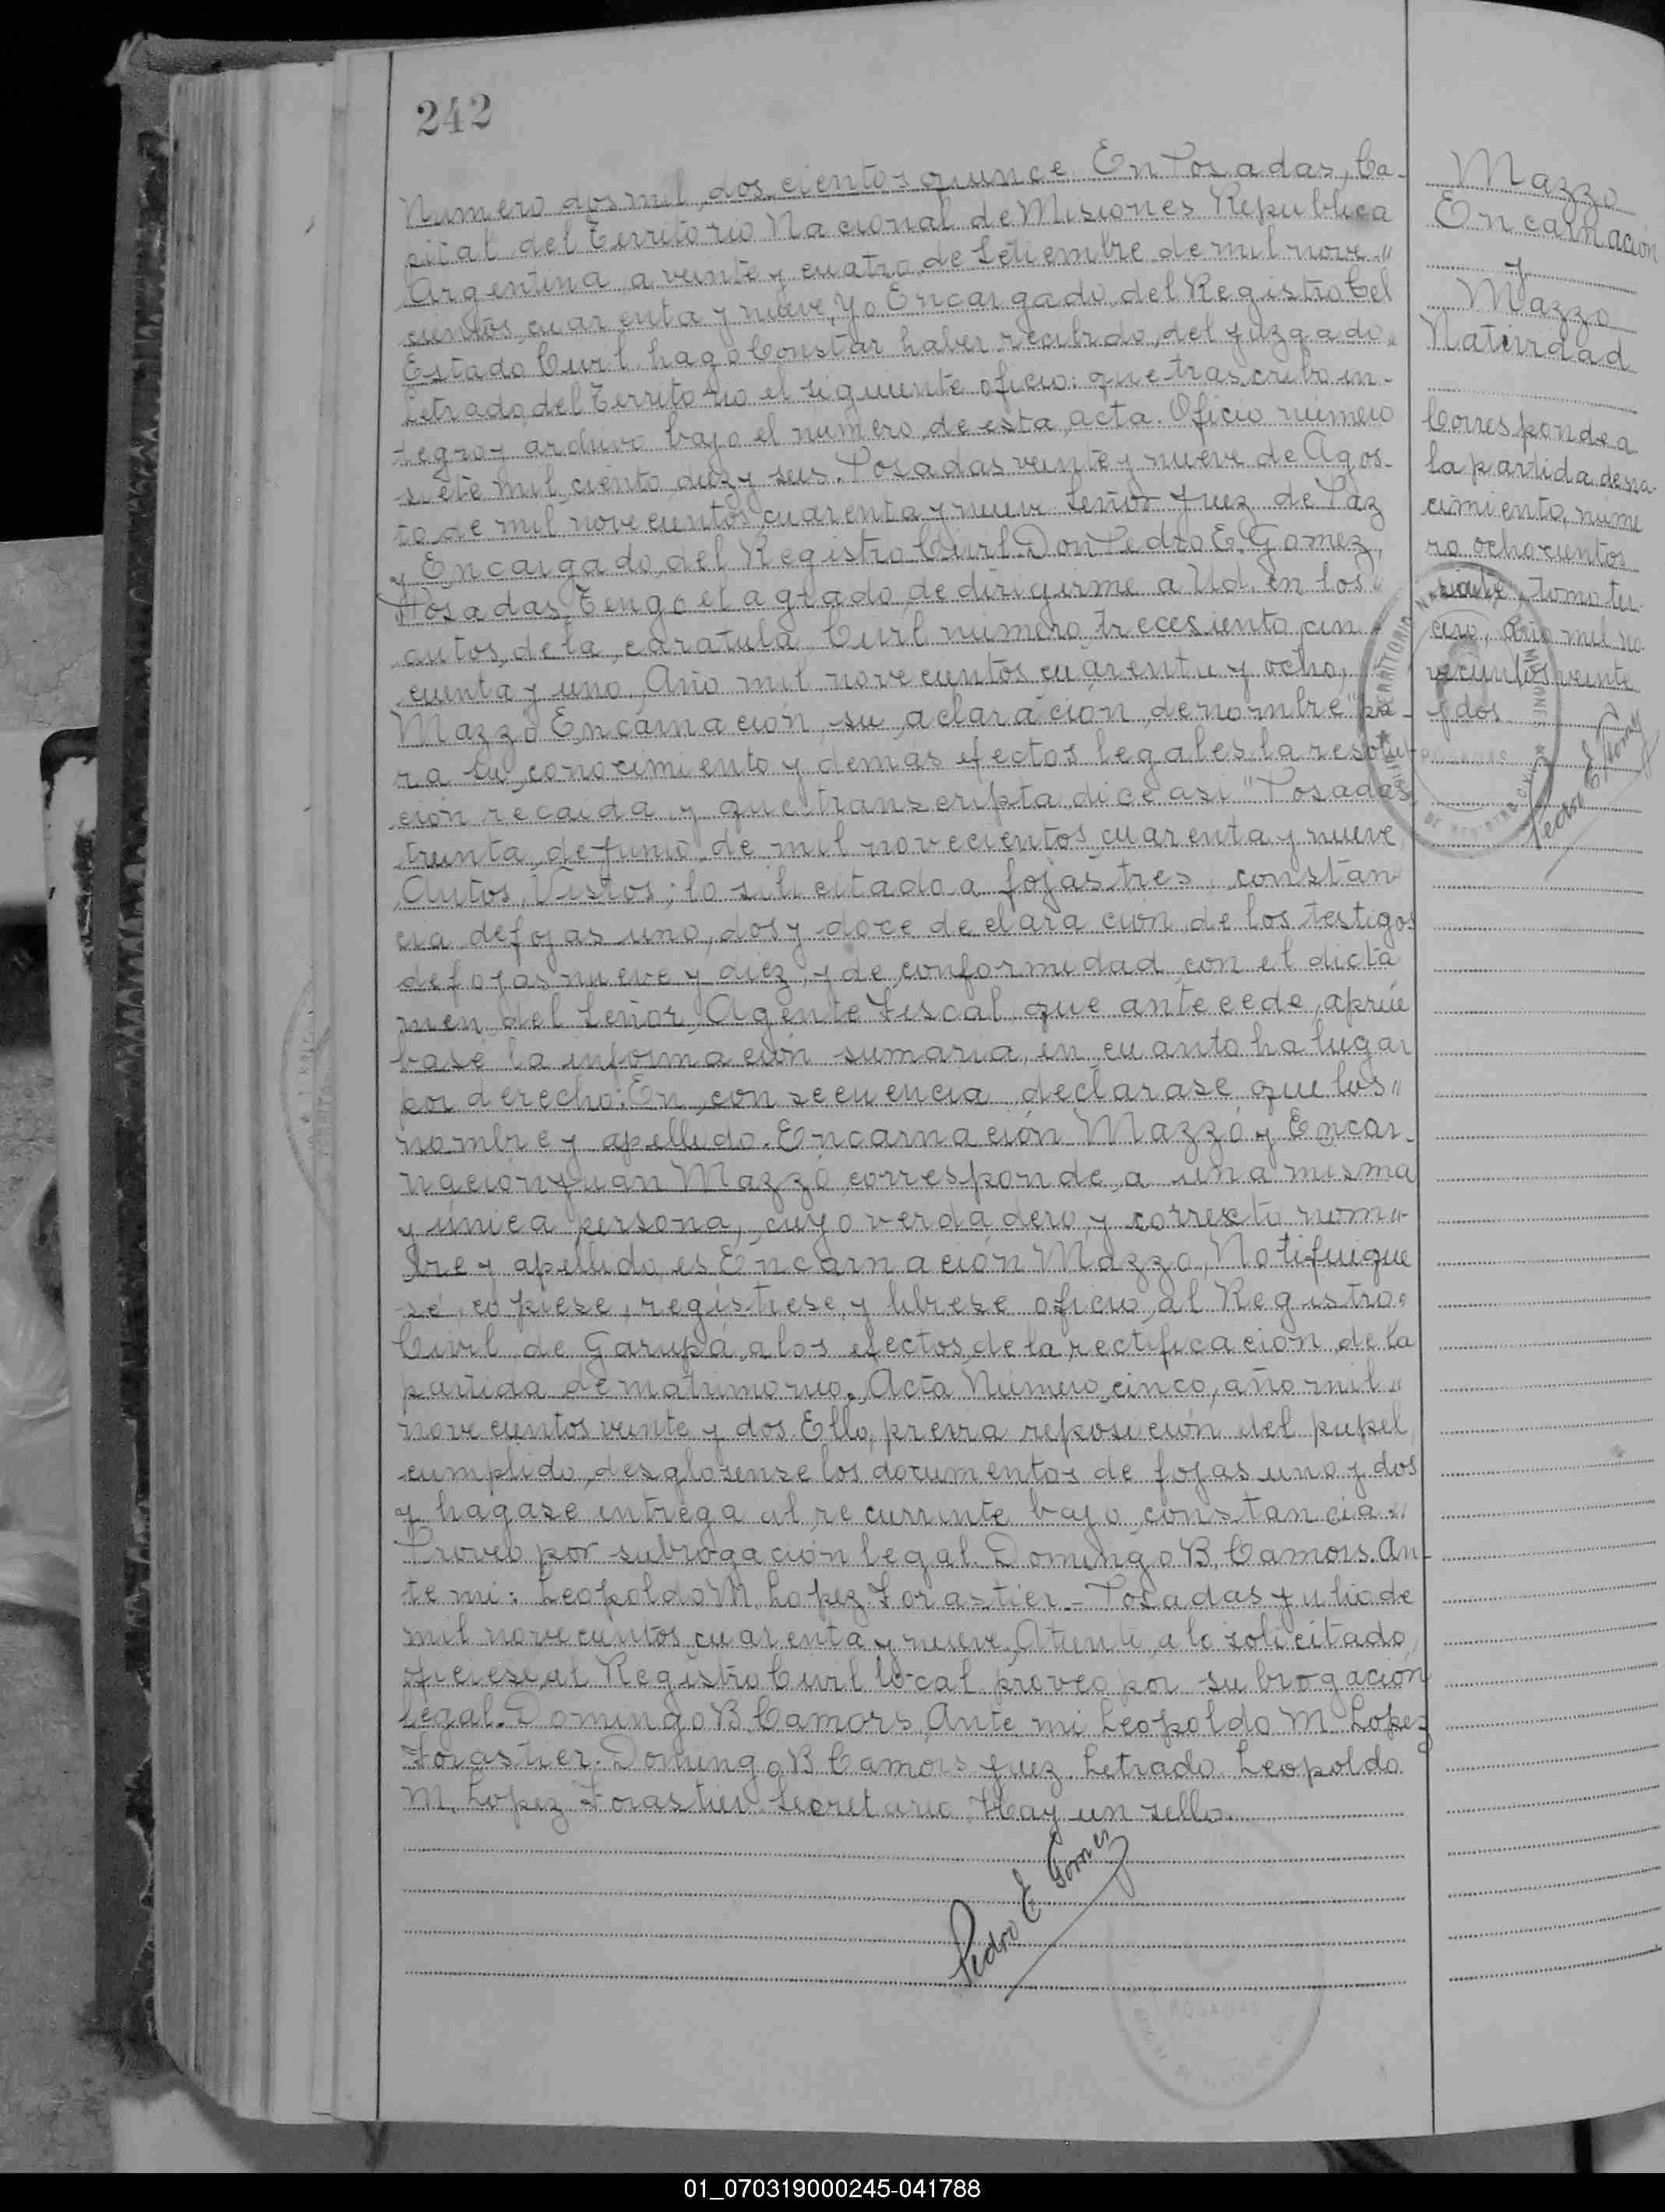 242
Numero dos mil, dos cientos quince. En Posadas, Ca-
pital del Territorio Nacional de Misiones Republica
Argentina, a veinte y cuatro de Setiembre de mil nove"
cientos cuarenta y nueve, Yo Encargado del Registro del
Estado Civil hago Constar haber recibido, del Juzgado"
Letrado del Territorio el siguiente oficio: que trascribo in-
tegro y archivo bajo el numero de esta acta. Oficio número
siete mil ciento diez y seis. Posadas veinte y nueve de Agos-
to de mil novecientos cuarenta y nueve Señor Juez de Paz
y Encargado del Registro Civil Don Pedro E. Gomez,
Posadas. Tengo el agrado de dirigirme a Ud. en los"
autos de la caratula Civil número trecesiento cin-
cuenta y uno, Año mil novecientos cuarenta y ocho,
Mazzó Encarnación, su aclaración de nombre" pa-
ra su conocimiento y demás efectos legales la resolu-
ción recaida y que transcripta dice asi "Posadas
treinta de Junio de mil novecientos cuarenta y nueve
Autos Vistos; lo silicitado a fojas tres, constan
cia de fojas uno, dos y doce declaración de los testigos
de fojas nueve y diez, y de conformidad con el dicta
men del Señor Agente Fiscal que antecede, aprúe
base la información sumaria, en cuanto ha lugar
por derecho: En consecuencia declarase que los"
nombre y apellido. Encarnación Mazzó y Encar-
nación Juan Mazzó corresponde, a una misma
y única persona, cuyo verdadero y correcto nom"
bre y apellido es Encarnación Mazzo, Notifiquie
se, copiese, registrese y librese oficio al Registro"
Civil de Garupá, a los efectos de la rectificación de la
partida de matrimonio. Acta Número cinco, año mil"
novecientos veinte y dos. Ello, previa reposición del papel
cumplido, desglosense los documentos de fojas uno y dos
y hagase entrega al recurrente bajo constancia."
Proveo por subrogación legal. Domingo B. Camors. An-
te mi: Leopoldo M. Lopez Forastier. = Posadas Julio de
mil novecientos cuarenta y nueve, Atento, a lo solicitado,
oficiese, al Registro Civil local proveo por subrogación
legal. Domingo B. Camors, Ante mi Leopoldo M. Lopez
Forastier. Domingo B. Camors Juez Letrado. Leopoldo
M. Lopez Forastier Secretario. Hay un sello.
Pedro E Gomez
Mazzo
Encarnación
y
Mazzo
Natividad
Corresponde a
la partida de na
cimiento, nume
ro ochocientos
tomo ter
cero, año mil no
vecientos veinte
y dos
Pedro E Gomez
01_070319000245-041788